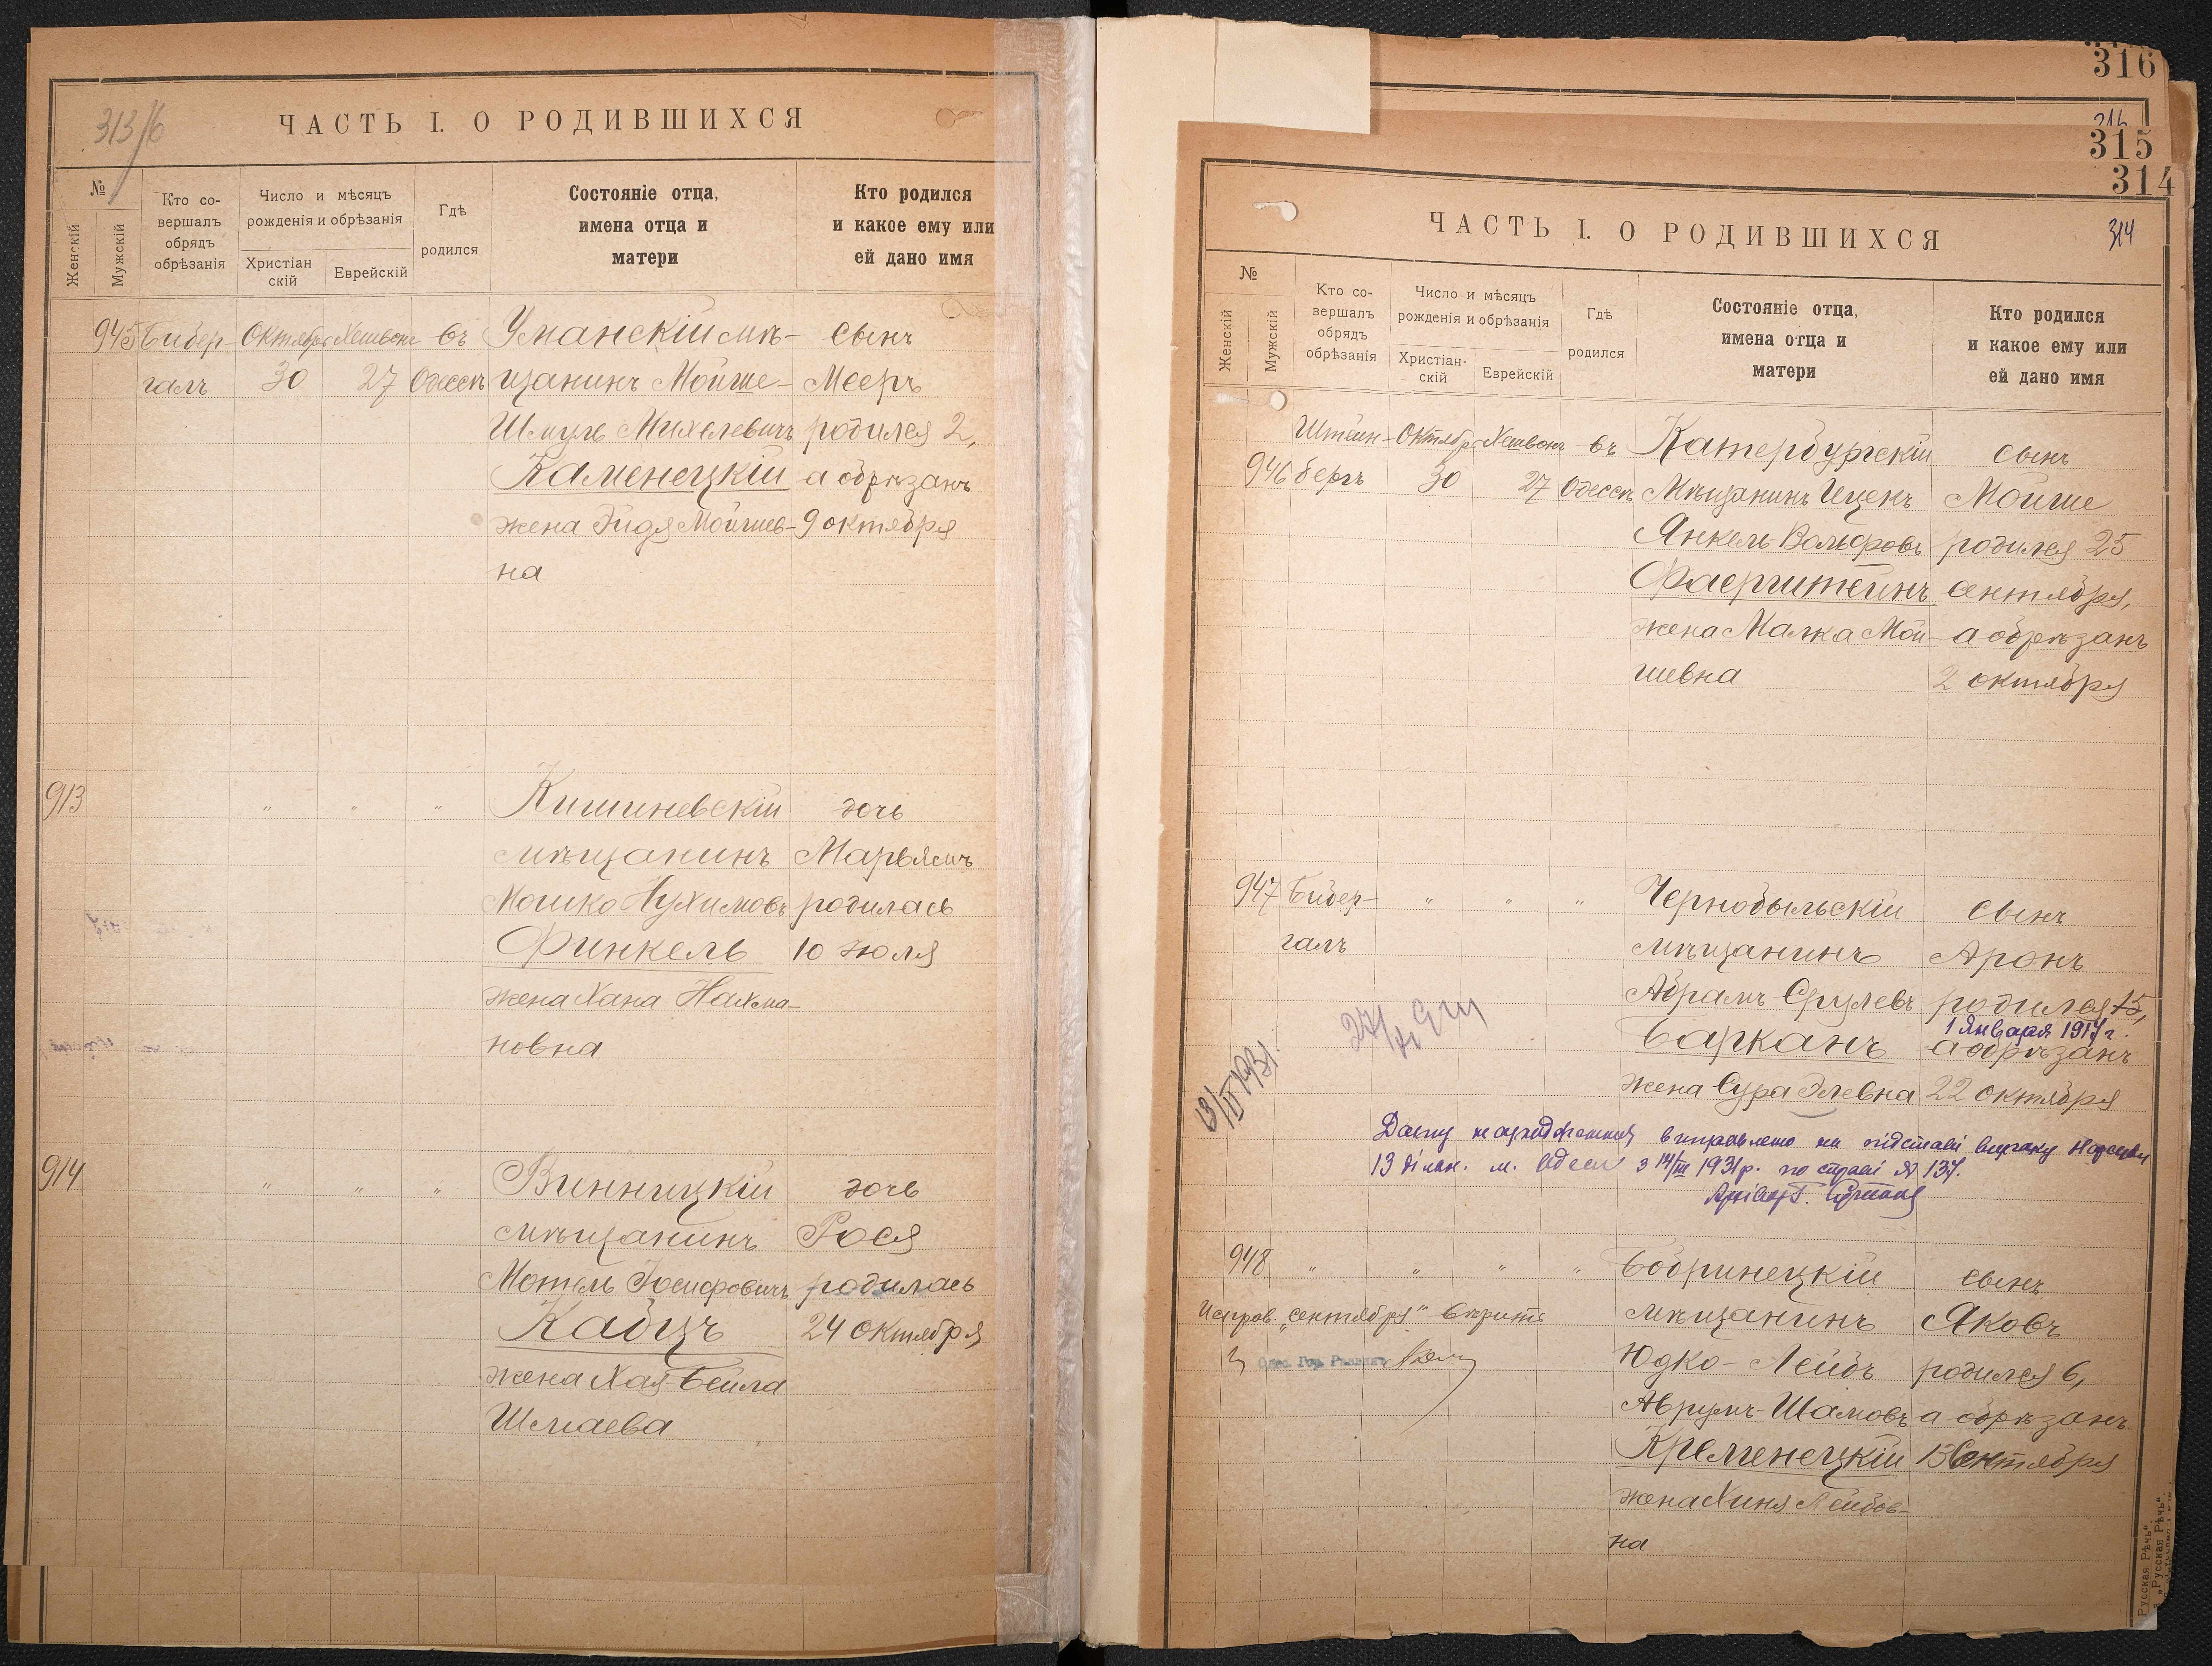 313/б
ЧАСТЬ I. О РОДИВШИХСЯ
№
Женскій
Мужскій
Кто со-
вершалъ
обрядъ
обрѣзанія
Число и мѣсяцъ
рожденія и обрѣзанія
Христіан
скій
Еврейскій
Гдѣ
родился
Состояніе отца,
имена отца и
матери
Кто родился
и какое ему или
ей дано имя
945 Бибер- Октября Хешвонъ въ Уманскій мѣ- сынъ
галъ 30 27 Одессѣ щанинъ Мойше- Мееръ
Шмуль Михелевичъ родился 2,
Каменецкій а обрѣзанъ
жена Эйдя Мойшев- 9 октября
на
913 " " " Кишиневскій дочь
мѣщанинъ Марьямъ
Мошко Нухимовъ родилась
Финкель 10 июля
жена Хана Нахма-
новна
914 " " " Винницкій дочь
мѣщанинъ Рося
Мотель Іосифовичъ родилась
Кабцъ 24 октября
жена Хая-Бейла
Шмаева
316
315
314
ЧАСТЬ I. О РОДИВШИХСЯ
314
№
Женскій
Мужскій
Кто со-
вершалъ
обрядъ
обрѣзанія
Число и мѣсяцъ
рожденія и обрѣзанія
Христіан-
скій
Еврейскій
Гдѣ
родился
Состояніе отца,
имена отца и
матери
Кто родился
и какое ему или
ей дано имя
Штейн- Октября Хешвонъ въ Катербургскій сынъ
946 бергъ 30 27 Одессѣ Мѣщанинъ Ицекъ Мойше
Янкель Вольфовъ родился 25
Фаерштейнъ сентября,
жена Малка Мой- а обрѣзанъ
шевна 2 октября
947 Бибер- " " " Чернобыльскій сынъ
галъ мѣщанинъ Аронъ
Абрамъ Срулевъ родился 15,
1 Января 1917 г.
Барканъ а обрѣзанъ
жена Сура Элевна 22 октября
13/II 1931.
Дату народження виправлено на підставі вироку Нарсуду
13 дільн. м. Одеси з 14/III 1931 р. по справі № 137.
948 " " " " Бобринецкій сынъ
Исправ. „сентября" вѣрить мѣщанинъ Яковъ
Юдко-Лейбъ родился 6,
Аврумъ-Шамовъ а обрѣзанъ
Кременецкій 13 Сентября
жена Хиня Лейбов-
на
„Русская Рѣчь"
„Русская Рѣчь"